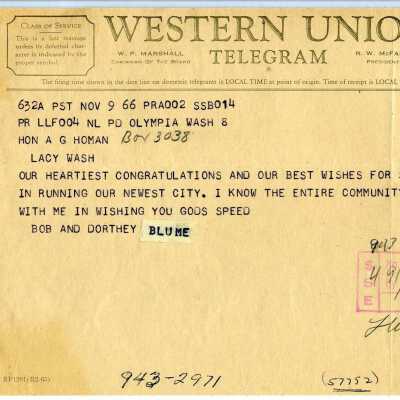 CLASS OF SERVICE
This is a fast message
unless its deferred character is indicated by the
proper symbol.
WESTERN UNIO
TELEGRAM
W. P. MARSHALL
CHAIRMAN OF THE BOARD
R. W. McFA
PRESIDENT
The filing time shown in the date line on domestic telegrams is LOCAL TIME at point of origin. Time of receipt is LOCAL
632A PST NOV 9 66 PRA002 SSB014
PR LLF004 NL PD OLYMPIA WASH 8
HON A G HOMAN Box 3038
LACY WASH
OUR HEARTIEST CONGRATULATIONS AND OUR BEST WISHES FOR
IN RUNNING OUR NEWEST CITY. I KNOW THE ENTIRE COMMUNITY
WITH ME IN WISHING YOU GODS SPEED
BOB AND DORTHEY BLUME
943
S
S
E
943-2971
(57752)